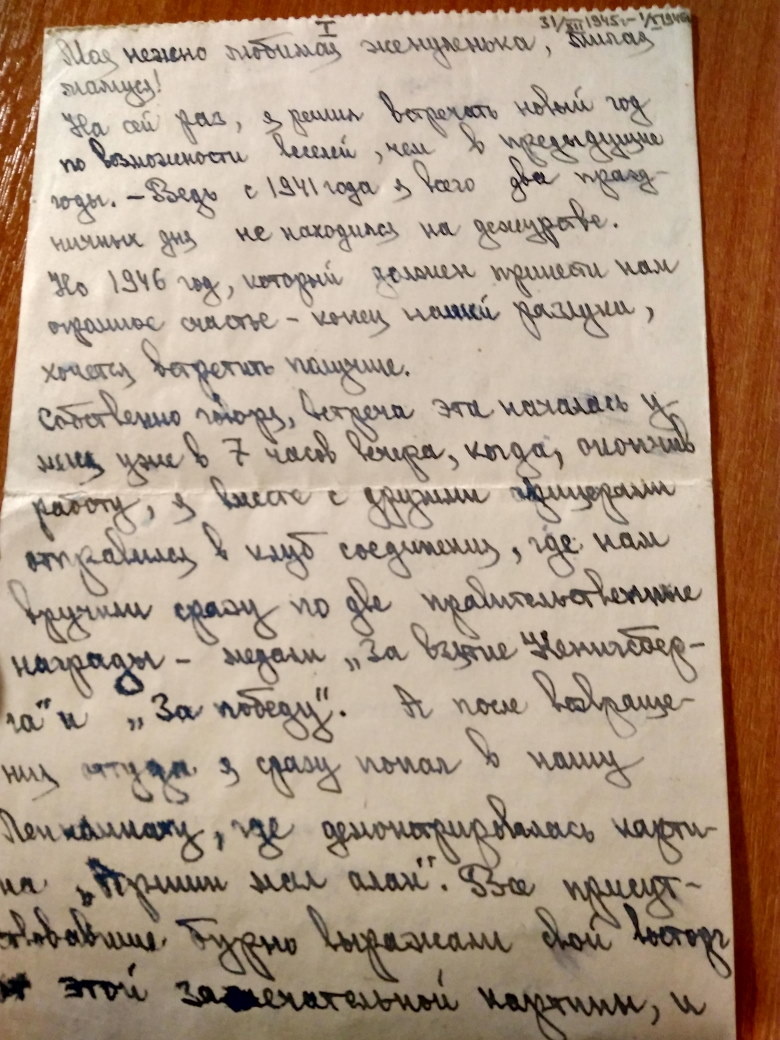 I
31/XII 1945г. – 1/I 1946г.
Моя нежно любимая женуленька, милая
мамуся!
На сей раз, я решил встречать новый год
по возможности веселей, чем в предыдущие
годы. – Ведь с 1941 года я всего два празд-
ничных дня не находился на дежурстве.
Но 1946 год, который должен принести нам
огромное счастье – конец нашей разлуки,
хочется встретить получше.
Собственно говоря, встреча эта началась у
меня уже в 7 часов вечера, когда, окончив
работу, я вместе с другими офицерами
отправился в клуб соединения, где нам
вручили сразу по две правительственные
награды – медали „За взятие Кенигсбер-
га" и „За победу". А после возвраще-
ния оттуда я сразу попал в нашу
Ленкомнату, где демонстрировалась карти-
на „Аршин мал алан". Все присут-
ствовавшие бурно выражали свой восторг
от этой замечательной картины, и